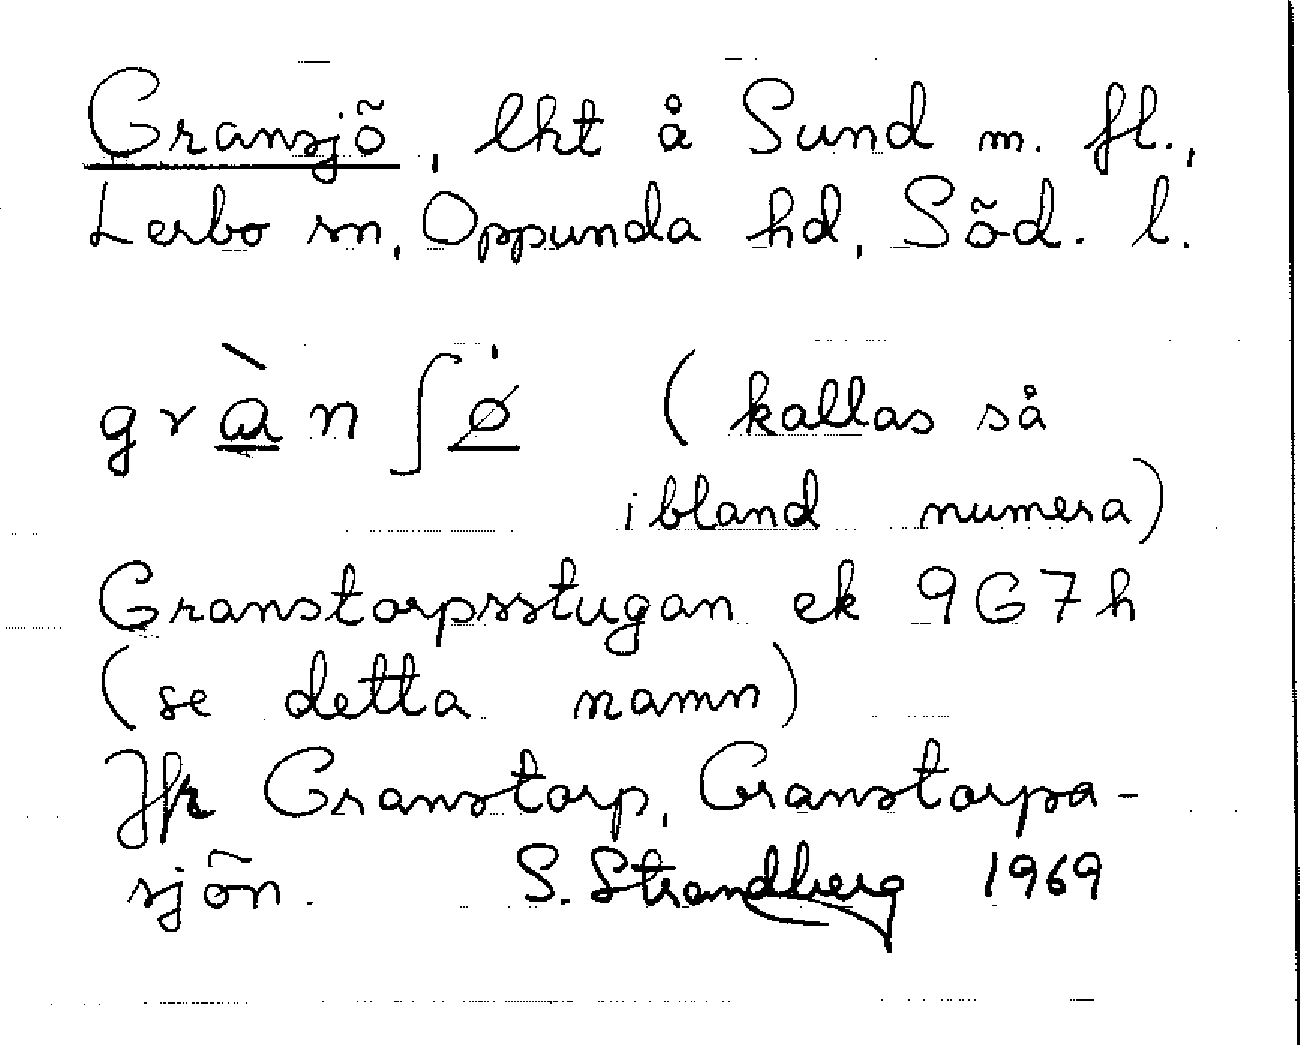 Gransjö, lht å Sund m. fl.,
Lerbo sn, Oppunda hd, Söd. l.
grà̱nʃø̱̇ (kallas så
ibland numera)
Granstorpsstugan ek 9G7h
(se detta namn)
Jfr Granstorp, Granstorpa-
sjön. S. Strandberg 1969